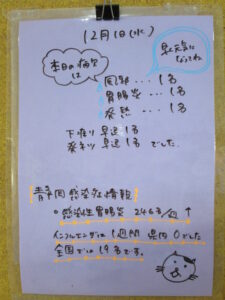 12月1日(水)
早く元気に
なってね
本日の病欠
は
風邪・・・1名
胃腸炎・・・1名
発熱・・・1名
下痢り 早退 1名
発ネツ 早退 1名 でした。
静岡感染症情報
感染性胃腸炎 246名/週 ↑
インフルエンザは 1週間 県内 0でした
全国では 19名です。